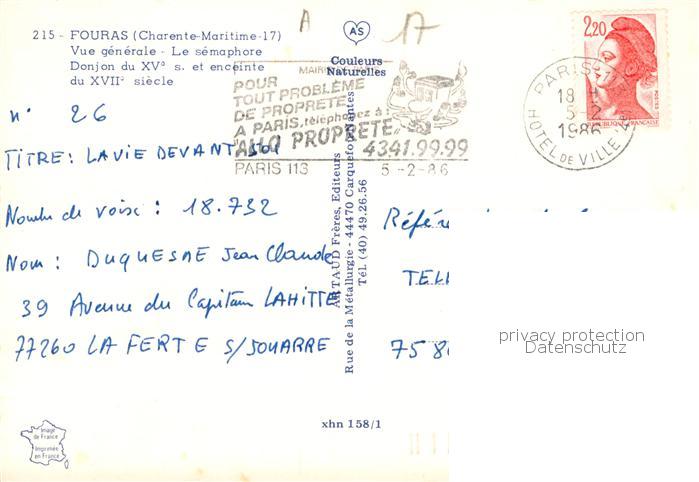 215 - FOURAS (Charente-Maritime-17)
Vue générale - Le sémaphore
Donjon du XVe s. et enceinte
du XVIIe siècle
A 17
AS
Couleurs
Naturelles
MAIRIE
POUR
TOUT PROBLÈME
DE PROPRETÉ
A PARIS, téléphonez à
ALLO PROPRETÉ
43.41.99.99
PARIS 113
5-2-86
2,20
POSTES
RÉPUBLIQUE FRANÇAISE
PARIS
18 H
5-2
1986
HOTEL DE VILLE
n° 26
TITRE: LA VIE DEVANT SOI
Nombre de voix: 18.732
Nom: DUQUESNE Jean Claude
39 Avenue du Capitain LAHITTE
77260 LA FERTE S/JOUARRE
ARTAUD Frères, Editeurs
Rue de la Métallurgie - 44470 Carquefou-Nantes
Tél. (40) 49.26.56
privacy protection
Datenschutz
xhn 158/1
Image
de France
Imprimée
en France